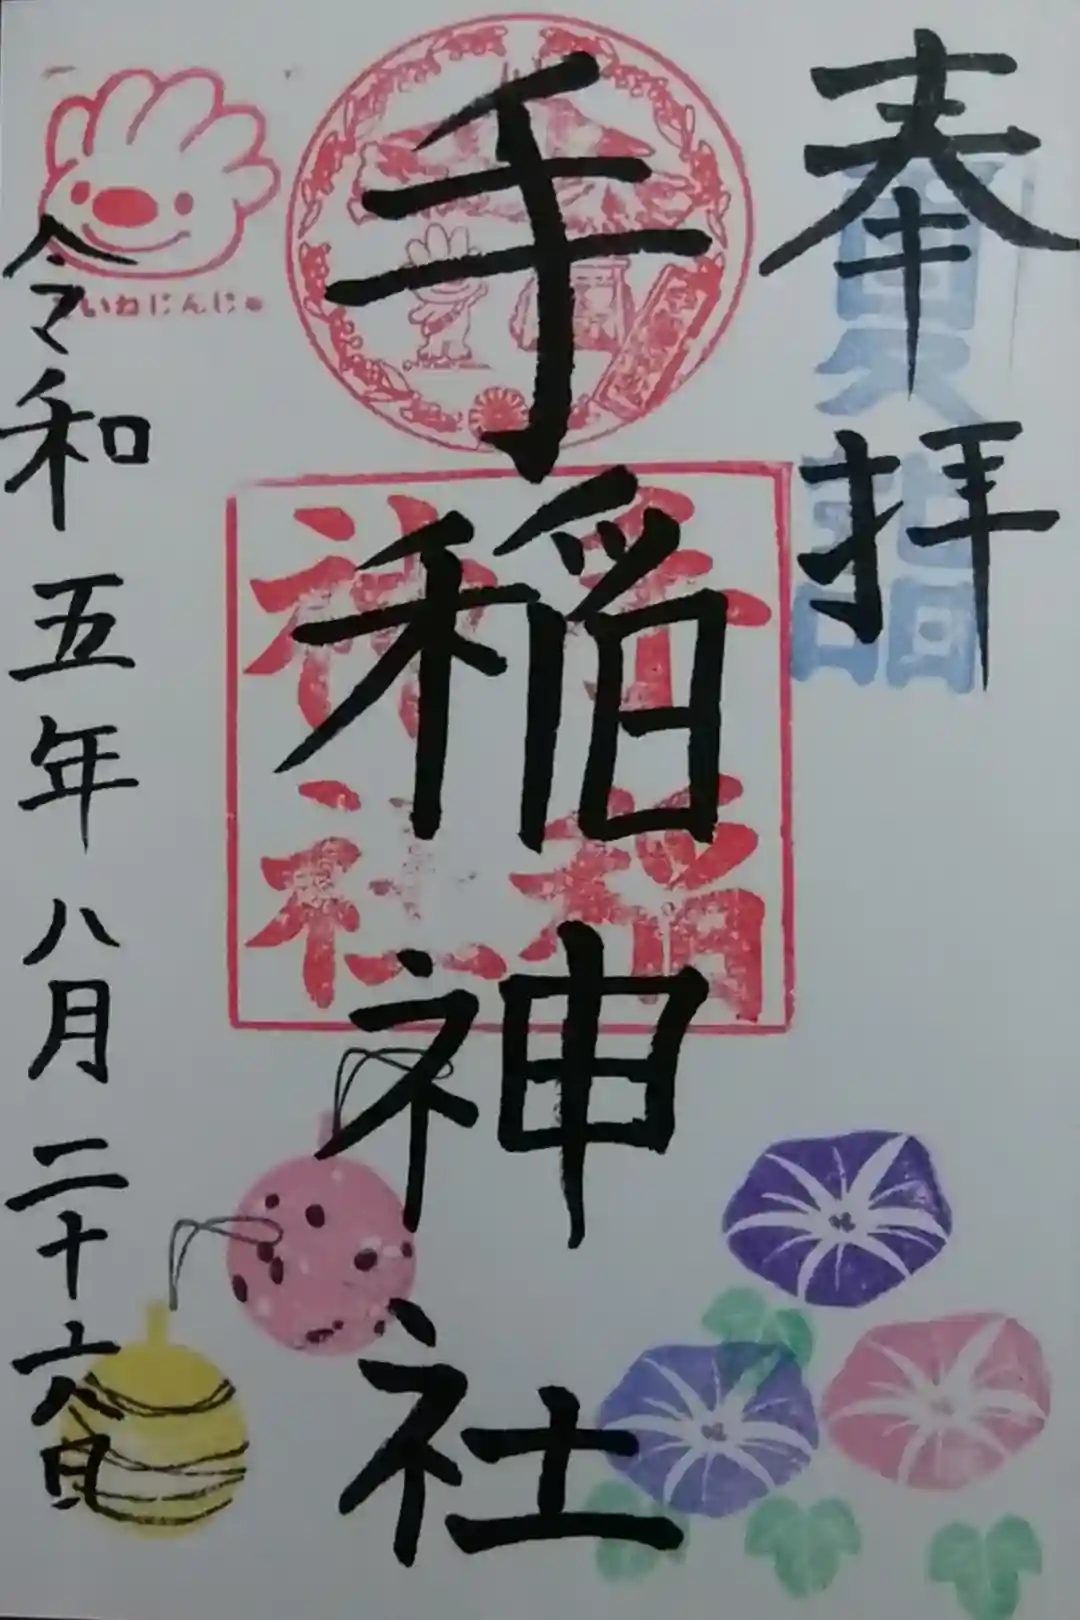 奉拝
夏詣
手稲神社
手稲
神社
ていねじんじゃ
令和五年八月二十六日